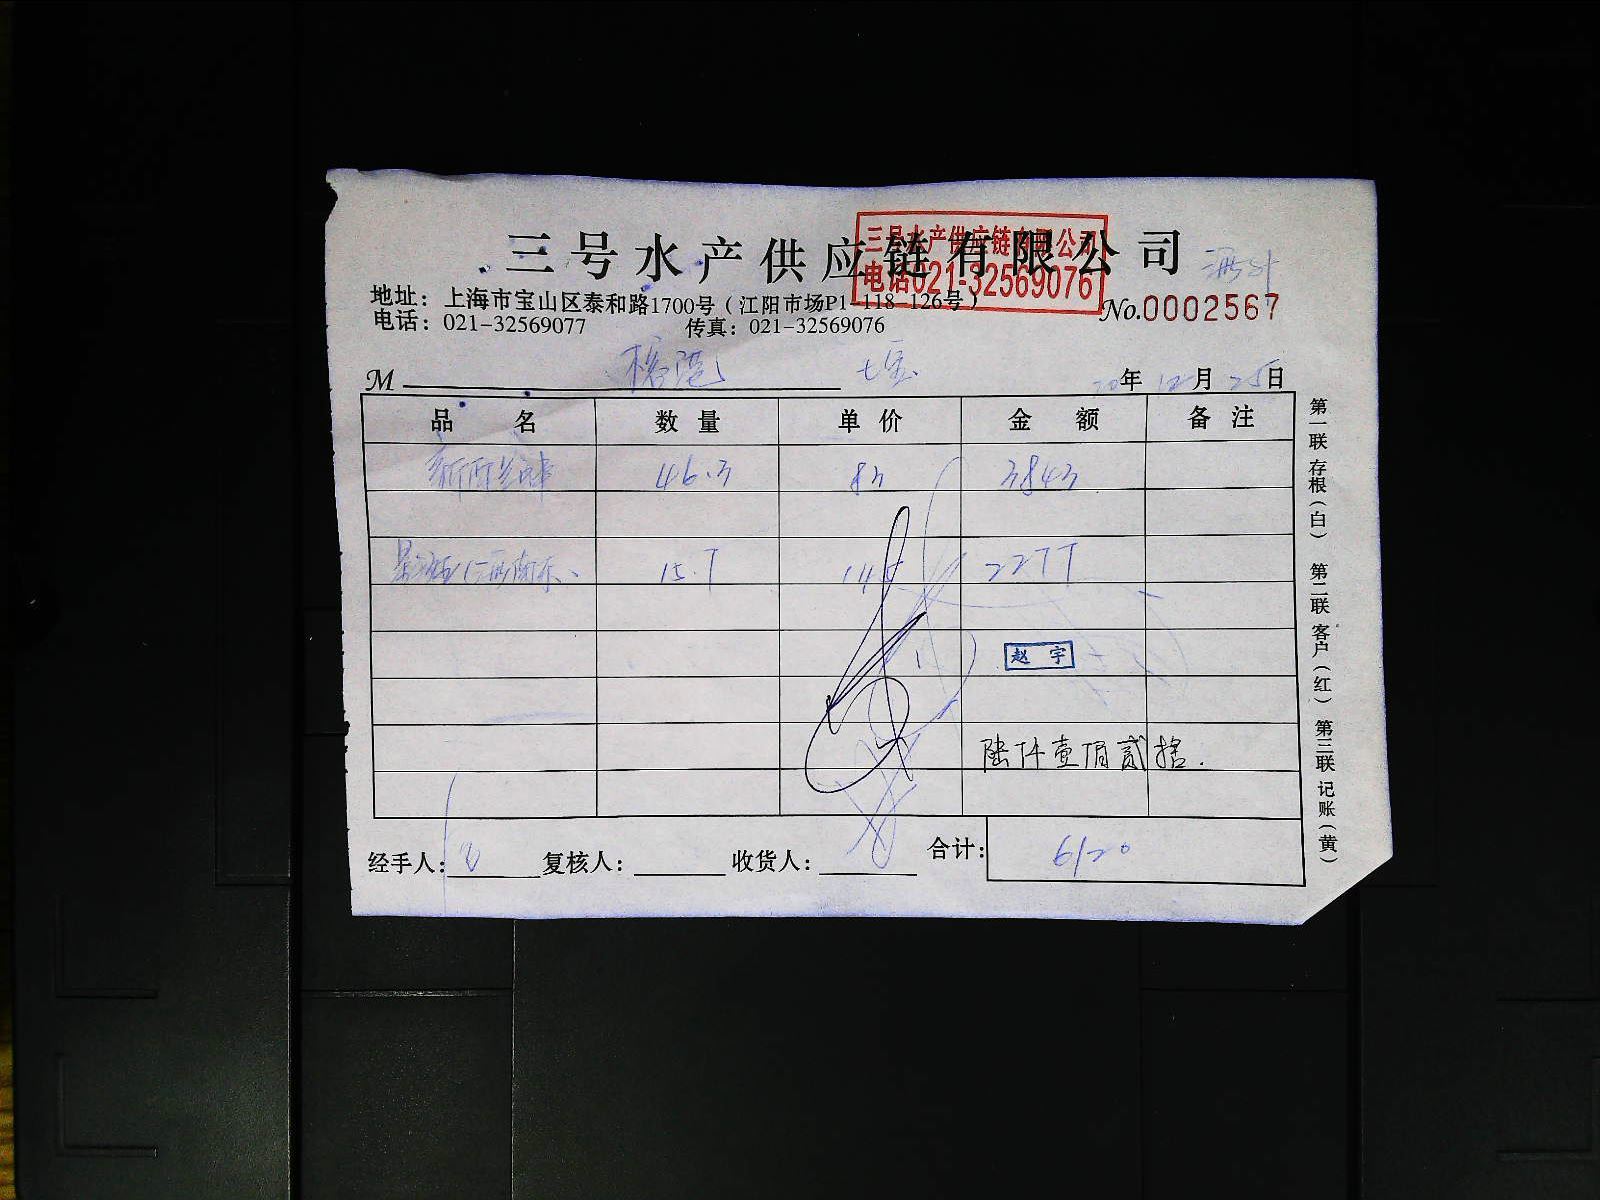 三号水产供应链有限公司
三号水产供应链有限公司
电话021-32569076
地址：上海市宝山区泰和路1700号（江阳市场P1-118-126号）
No.0002567
电话：021-32569077 传真：021-32569076
M 榕港 七宝 20年12月25日
品名 数量 单价 金额 备注
46.3 83 3843
15.7 145 2277
赵宇
陆仟壹佰贰拾.
经手人： 复核人： 收货人： 合计： 6120
第一联 存根（白） 第二联 客户（红） 第三联 记账（黄）